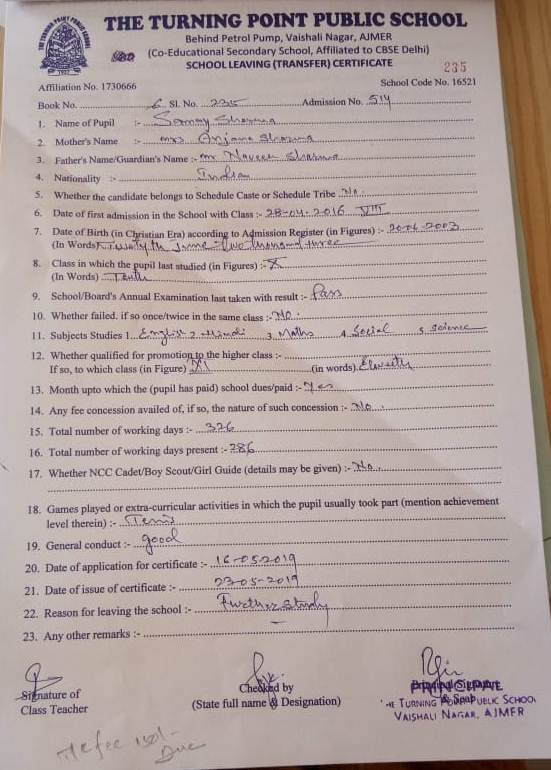 THE TURNING POINT PUBLIC SCHOOL
Behind Petrol Pump, Vaishali Nagar, AJMER
(Co-Educational Secondary School, Affiliated to CBSE Delhi)
SCHOOL LEAVING (TRANSFER) CERTIFICATE
235
Affiliation No. 1730666 School Code No. 16521
Book No. 6 Sl. No. 235 Admission No. 514
1. Name of Pupil :- Sammy Sharma
2. Mother's Name :- mrs Anjana Sharma
3. Father's Name/Guardian's Name :- mr Naveen Sharma
4. Nationality :- India
5. Whether the candidate belongs to Schedule Caste or Schedule Tribe No.
6. Date of first admission in the School with Class :- 28-04-2016 VIII
7. Date of Birth (in Christian Era) according to Admission Register (in Figures) :- 20-06-2003
(In Words) Twenty th June Two thousand three
8. Class in which the pupil last studied (in Figures) :- X
(In Words) Tenth
9. School/Board's Annual Examination last taken with result :- Pass
10. Whether failed. if so once/twice in the same class :- No.
11. Subjects Studies 1. English 2 Hindi 3. Maths 4. Social 5. science
12. Whether qualified for promotion to the higher class :-
If so, to which class (in Figure) XI (in words)
13. Month upto which the (pupil has paid) school dues/paid :- Yes
14. Any fee concession availed of, if so, the nature of such concession :- No.
15. Total number of working days :- 326
16. Total number of working days present :- 286
17. Whether NCC Cadet/Boy Scout/Girl Guide (details may be given) :- No
18. Games played or extra-curricular activities in which the pupil usually took part (mention achievement
level therein) :-
19. General conduct :- good
20. Date of application for certificate :- 16-05-2019
21. Date of issue of certificate :- 23-05-2019
22. Reason for leaving the school :- Further Study
23. Any other remarks :-
Signature of Checked by Principal Signature
Class Teacher (State full name & Designation) & Seal
PRINCIPAL
THE TURNING POINT PUBLIC SCHOOL
VAISHALI NAGAR, AJMER
fee
Due